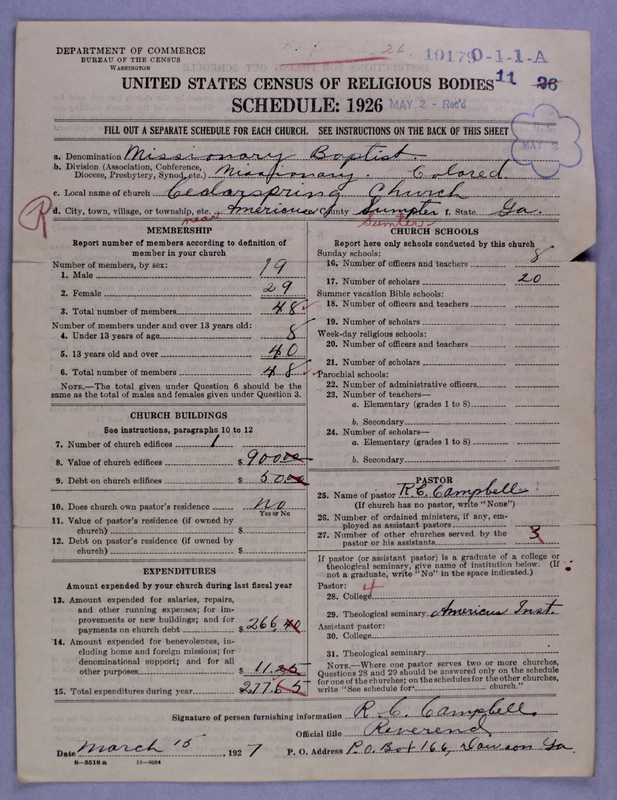 DEPARTMENT OF COMMERCE
BUREAU OF THE CENSUS
WASHINGTON
26
10179 0-1-1-A
UNITED STATES CENSUS OF RELIGIOUS BODIES 11 26
SCHEDULE: 1926 MAY 2 - Rec'd
FILL OUT A SEPARATE SCHEDULE FOR EACH CHURCH. SEE INSTRUCTIONS ON THE BACK OF THIS SHEET
MAY 2
a. Denomination Missionary Baptist.
b. Division (Association, Conference, Diocese, Presbytery, Synod, etc.) Missionary. Colored.
c. Local name of church Cedarspring Church
d. City, town, village, or township, etc. near Americus County Sumpter f. State Ga.
Sumter
R
MEMBERSHIP
Report number of members according to definition of
member in your church
Number of members, by sex:
1. Male 19
2. Female 29
3. Total number of members 48
Number of members under and over 13 years old:
4. Under 13 years of age 8
5. 13 years old and over 40
6. Total number of members 48
NOTE.—The total given under Question 6 should be
same as the total of males and females given under Question 3.
CHURCH BUILDINGS
See instructions, paragraphs 10 to 12
7. Number of church edifices 1
8. Value of church edifices $ 900.00
9. Debt on church edifices $ 50.00
10. Does church own pastor's residence No
Yes or No
11. Value of pastor's residence (if owned by
church) $
12. Debt on pastor's residence (if owned by
church) $
EXPENDITURES
Amount expended by your church during last fiscal year
13. Amount expended for salaries, repairs,
and other running expenses; for im-
provements or new buildings; and for
payments on church debt $ 266.40
14. Amount expended for benevolences, in-
cluding home and foreign missions; for
denominational support; and for all
other purposes $ 11.25
15. Total expenditures during year 277.65
CHURCH SCHOOLS
Report here only schools conducted by this church
Sunday schools:
16. Number of officers and teachers 8
17. Number of scholars 20
Summer vacation Bible schools:
18. Number of officers and teachers
19. Number of scholars
Week-day religious schools:
20. Number of officers and teachers
21. Number of scholars
Parochial schools:
22. Number of administrative officers
23. Number of teachers—
a. Elementary (grades 1 to 8)
b. Secondary
24. Number of scholars—
a. Elementary (grades 1 to 8)
b. Secondary
PASTOR
25. Name of pastor R.C. Campbell
(If church has no pastor, write "None")
26. Number of ordained ministers, if any, em-
ployed as assistant pastors
27. Number of other churches served by the
pastor or his assistants 3
If pastor (or assistant pastor) is a graduate of a college or
theological seminary, give name of institution below. (If
not a graduate, write "No" in the space indicated.)
Pastor: 4
28. College
29. Theological seminary Americus Inst.
Assistant pastor:
30. College
31. Theological seminary
NOTE.—Where one pastor serves two or more churches,
Questions 28 and 29 should be answered only on the schedule
for one of the churches; on the schedules for the other churches,
write "See schedule for church."
Signature of person furnishing information R. C. Campbell
Official title Reverend
Date March 15, 1927 P. O. Address P.O. Box 166, Dawson Ga.
8—5518 a 11—9054